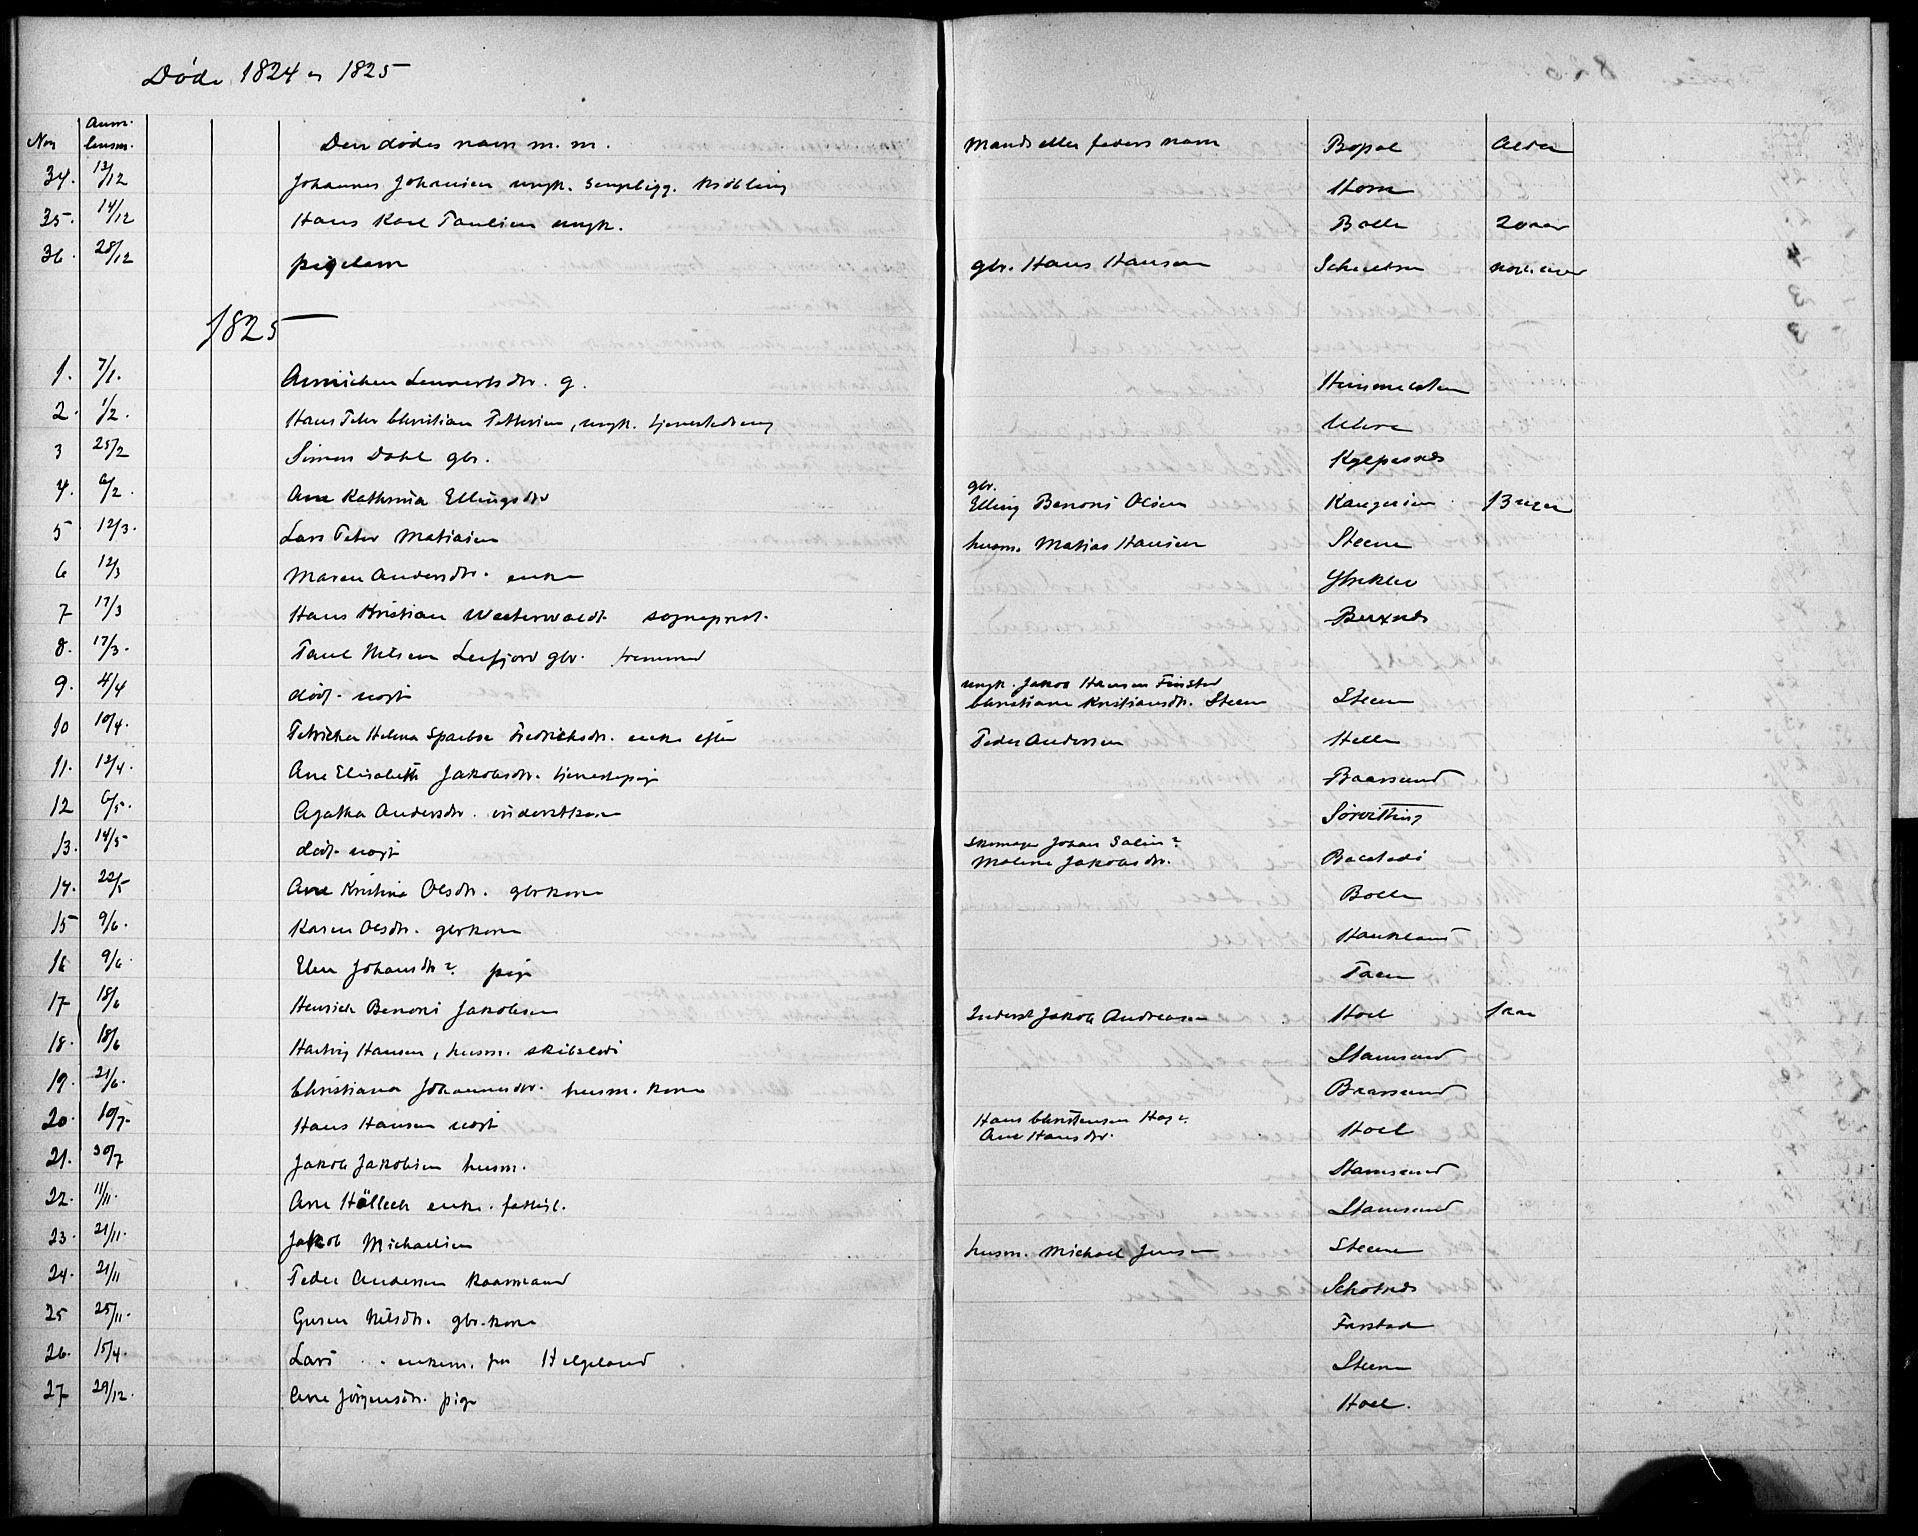 Døde 1824 og 1825
Nor Anm. lensm. Den dødes navn m. m. Mands eller faders navn Bopæl Alder
34. 13/12 Johannes Johansen ungk. sengeligg. krøbling Horn
35. 14/12 Hans Karl Paulsen ungk. Bolle 20 aar
36. 28/12 pigebarn gbr. Hans Hansen
1825
1. 7/1. Annichen Lennertsdtr. g.
2. 1/2. Hans Peter Christian Pettersen, ungk. tjenestedreng Uhre
3 25/2 Simon Dahl gbr.
4. 6/2. Ane Kathrina Ellingsdtr gbr. Elling Benoni Olsen 13 uger
5 12/3. Lars Peter Matiasen husm. Matias Hansen Steene
6 12/3 Maren Andersdtr. enke
7 17/3 Hans Kristian Westerwaldt sogneprest. Buxnes
8. 17/3. Paul Nilsen Leefjord gbr. fremmed
9. 4/4 dødf. uegt ungk. Jakob Hansen Finstad Christiane Kristiansdtr. Steene Steene
10 10/4. Petricka Helena Sparboe Fredriksdtr. enke efter Peder Andersen Helle
11. 12/4. Ane Elisabeth Jakobsdtr. tjenestepige Baarsund
12 6/5. Agatha Andersdtr. inderstkone
13. 14/5 dødf. uegt skomager Johan Salin? Malene Jakobsdtr.
14. 22/5 Ane Kristine Olsdtr. gbrkone Bolle
15 9/6. Karen Olsdtr. gbrkone Haukland
16 9/6. Elen Johansdtr? pige Taen
17 18/6 Henrich Benoni Jakobsen Inderst Jakob Andreasen Hoel 1 aar
18. 18/6 Hartvig Hansen, husm. Stamsund
19. 21/6. Christiana Johannesdtr. husm. kone Brarsund
20. 10/7. Hans Hansen uegt Hans Christensen Hag? Ane Hansdtr. Hoel
21. 30/7 Jakob Jakobsen husm. Stamsund
22. 11/11. Ane Hölleck enke. fattigl. Stamsund
23. 21/11. Jakob Michaelsen husm. Michael Jensen Steene
24. 21/11 Peder Andersen kaarmand
25 25/11. Guren Nilsdtr. gbr.kone Farstad
26. 15/4. Lars . . enkem. fra Helgeland Steene
27 29/12. Ane Jörgensdtr. pige Hoel.